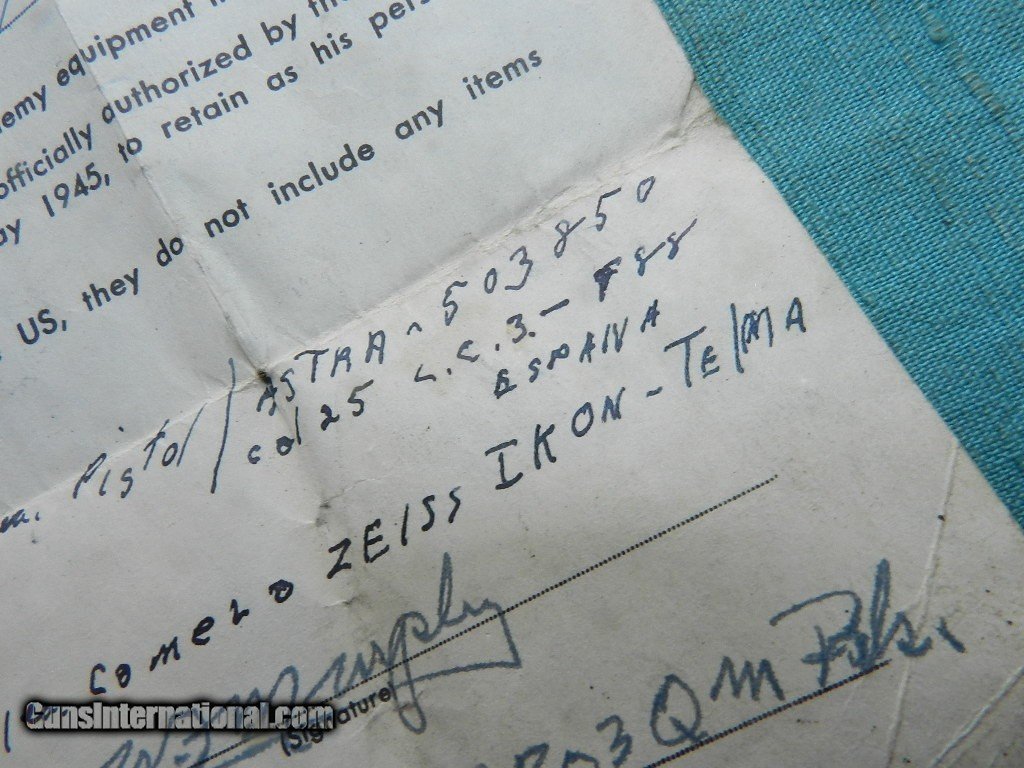 emy equipment
officially authorized by the
ay 1945, to retain as his pers
US, they do not include any items
Pistol / ASTRA - 503850
cal 25 C.C.3. - F88
ESPANA
1 camera ZEISS IKON - TE/MA
W. J. Murphy
(Signature)
3 QM
GunsInternational.com